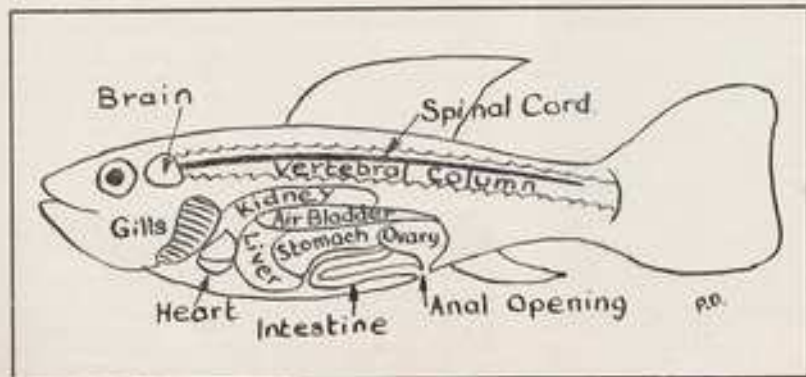 Brain
Spinal Cord
Vertebral Column
Kidney
Gills
Air Bladder
Liver
Stomach
Ovary
Heart
Intestine
Anal Opening
P.D.